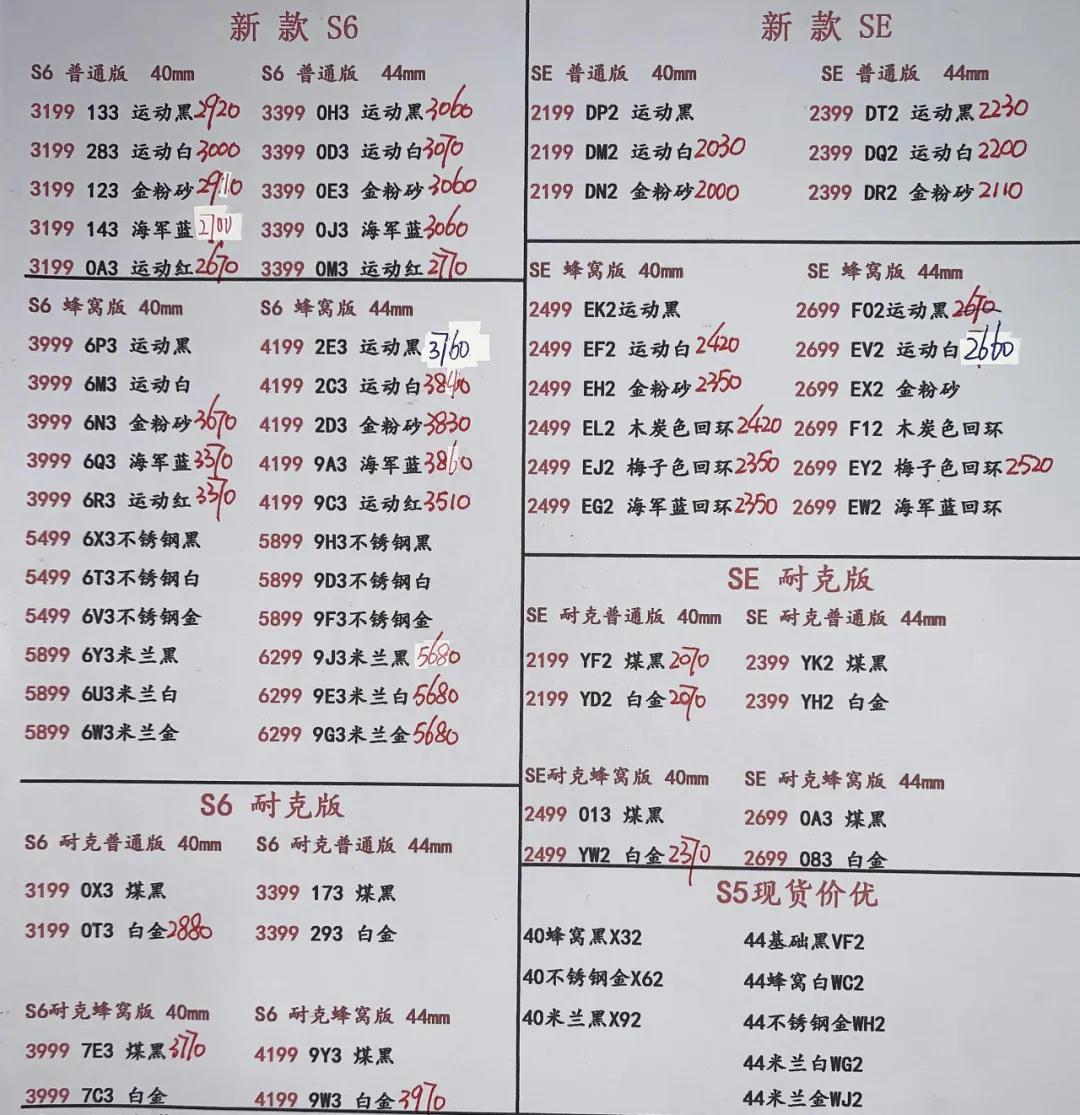 新 款 S6
S6 普通版 40mm
3199 133 运动黑2920
3199 283 运动白3000
3199 123 金粉砂2910
3199 143 海军蓝2700
3199 0A3 运动红2670
S6 普通版 44mm
3399 0H3 运动黑3060
3399 0D3 运动白3070
3399 0E3 金粉砂3060
3399 0J3 海军蓝3060
3399 0M3 运动红2770
S6 蜂窝版 40mm
3999 6P3 运动黑
3999 6M3 运动白
3999 6N3 金粉砂3670
3999 6Q3 海军蓝3370
3999 6R3 运动红3370
5499 6X3不锈钢黑
5499 6T3不锈钢白
5499 6V3不锈钢金
5899 6Y3米兰黑
5899 6U3米兰白
5899 6W3米兰金
S6 蜂窝版 44mm
4199 2E3 运动黑3760
4199 2C3 运动白3840
4199 2D3 金粉砂3830
4199 9A3 海军蓝3860
4199 9C3 运动红3510
5899 9H3不锈钢黑
5899 9D3不锈钢白
5899 9F3不锈钢金
6299 9J3米兰黑5680
6299 9E3米兰白5680
6299 9G3米兰金5680
S6 耐克版
S6 耐克普通版 40mm
3199 0X3 煤黑
3199 0T3 白金2880
S6 耐克普通版 44mm
3399 173 煤黑
3399 293 白金
S6耐克蜂窝版 40mm
3999 7E3 煤黑3770
3999 7C3 白金
S6 耐克蜂窝版 44mm
4199 9Y3 煤黑
4199 9W3 白金3970
新 款 SE
SE 普通版 40mm
2199 DP2 运动黑
2199 DM2 运动白2030
2199 DN2 金粉砂2000
SE 普通版 44mm
2399 DT2 运动黑2230
2399 DQ2 运动白2200
2399 DR2 金粉砂2110
SE 蜂窝版 40mm
2499 EK2运动黑
2499 EF2 运动白2420
2499 EH2 金粉砂2350
2499 EL2 木炭色回环2420
2499 EJ2 梅子色回环2350
2499 EG2 海军蓝回环2350
SE 蜂窝版 44mm
2699 F02运动黑2670
2699 EV2 运动白2660
2699 EX2 金粉砂
2699 F12 木炭色回环
2699 EY2 梅子色回环2520
2699 EW2 海军蓝回环
SE 耐克版
SE 耐克普通版 40mm
2199 YF2 煤黑2070
2199 YD2 白金2070
SE 耐克普通版 44mm
2399 YK2 煤黑
2399 YH2 白金
SE耐克蜂窝版 40mm
2499 013 煤黑
2499 YW2 白金2370
SE 耐克蜂窝版 44mm
2699 0A3 煤黑
2699 083 白金
S5现货价优
40蜂窝黑X32
40不锈钢金X62
40米兰黑X92
44基础黑VF2
44蜂窝白WC2
44不锈钢金WH2
44米兰白WG2
44米兰金WJ2